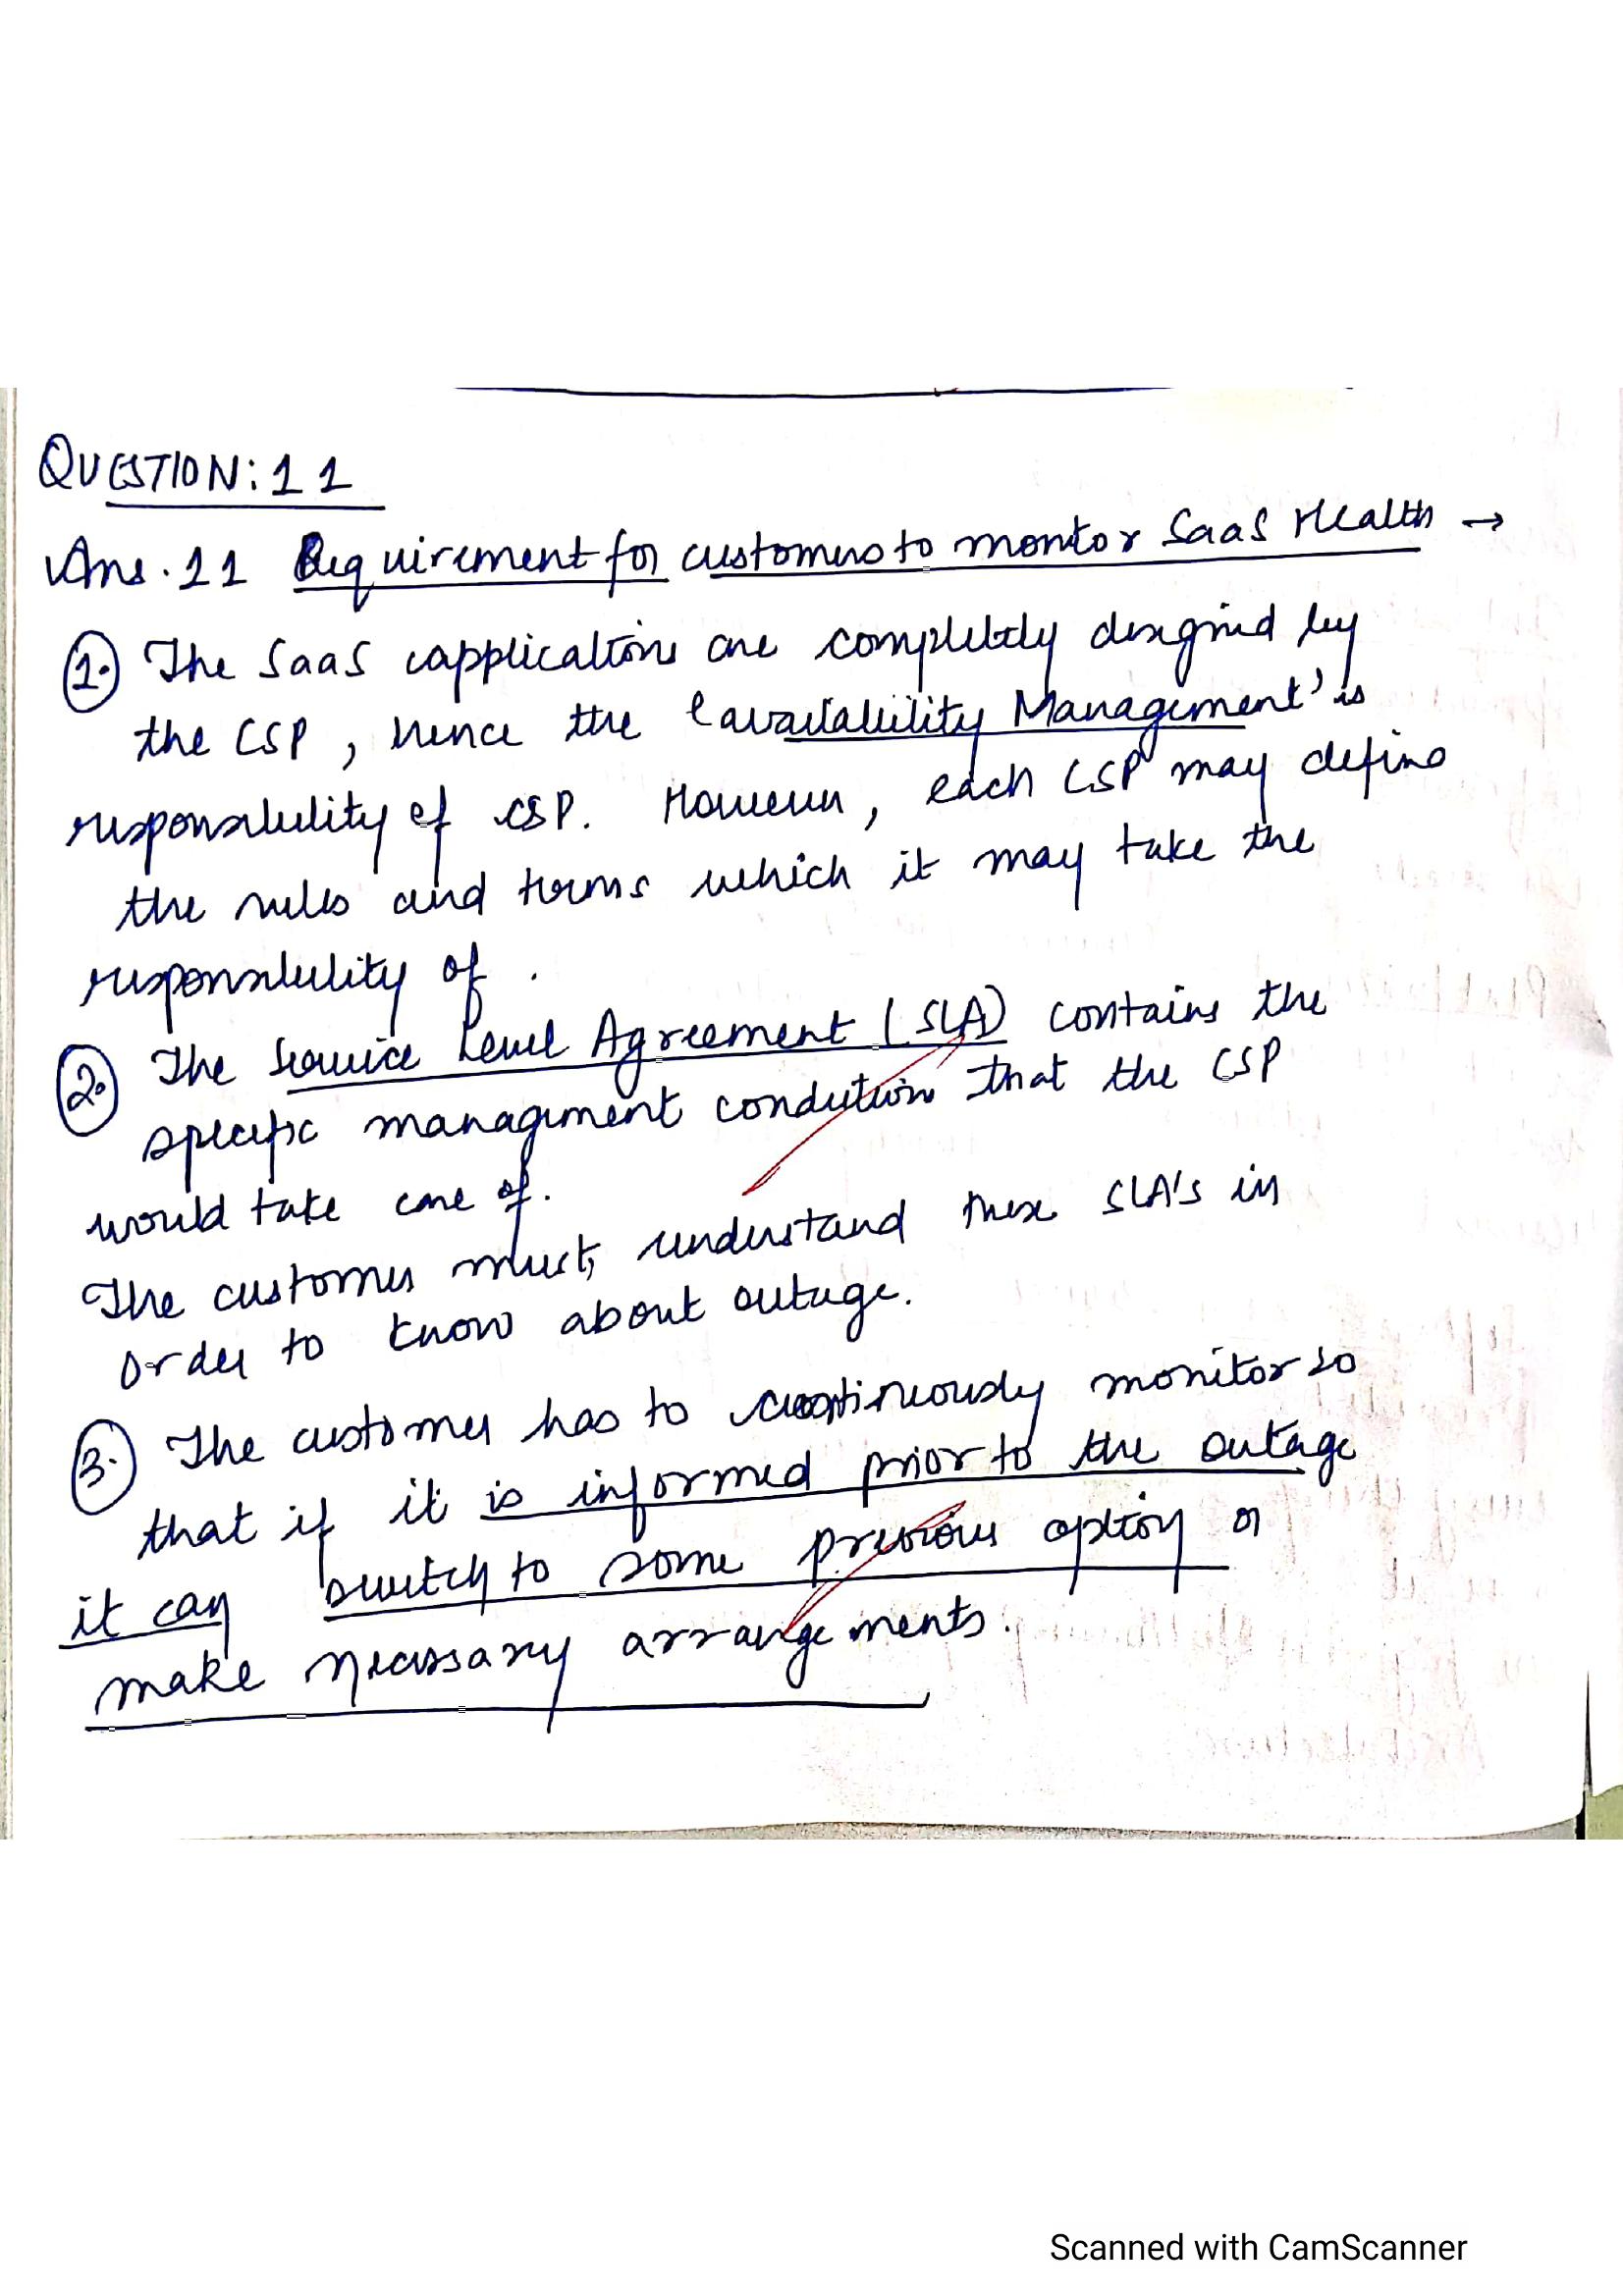 QUESTION: 11
Ans. 11 Requirement for customers to monitor SaaS Health →
1. The SaaS applications are completely designed by
the CSP, hence the 'availability Management' is
responsibility of CSP. However, each CSP may define
the rules and terms which it may take the
responsibility of.
2. The Service Level Agreement (SLA) contains the
specific management condition that the CSP
would take care of.
The customer must understand these SLA's in
order to know about outage.
3. The customer has to continuously monitor so
that if it is informed prior to the outage
it can switch to some previous option or
make necessary arrangements.
Scanned with CamScanner